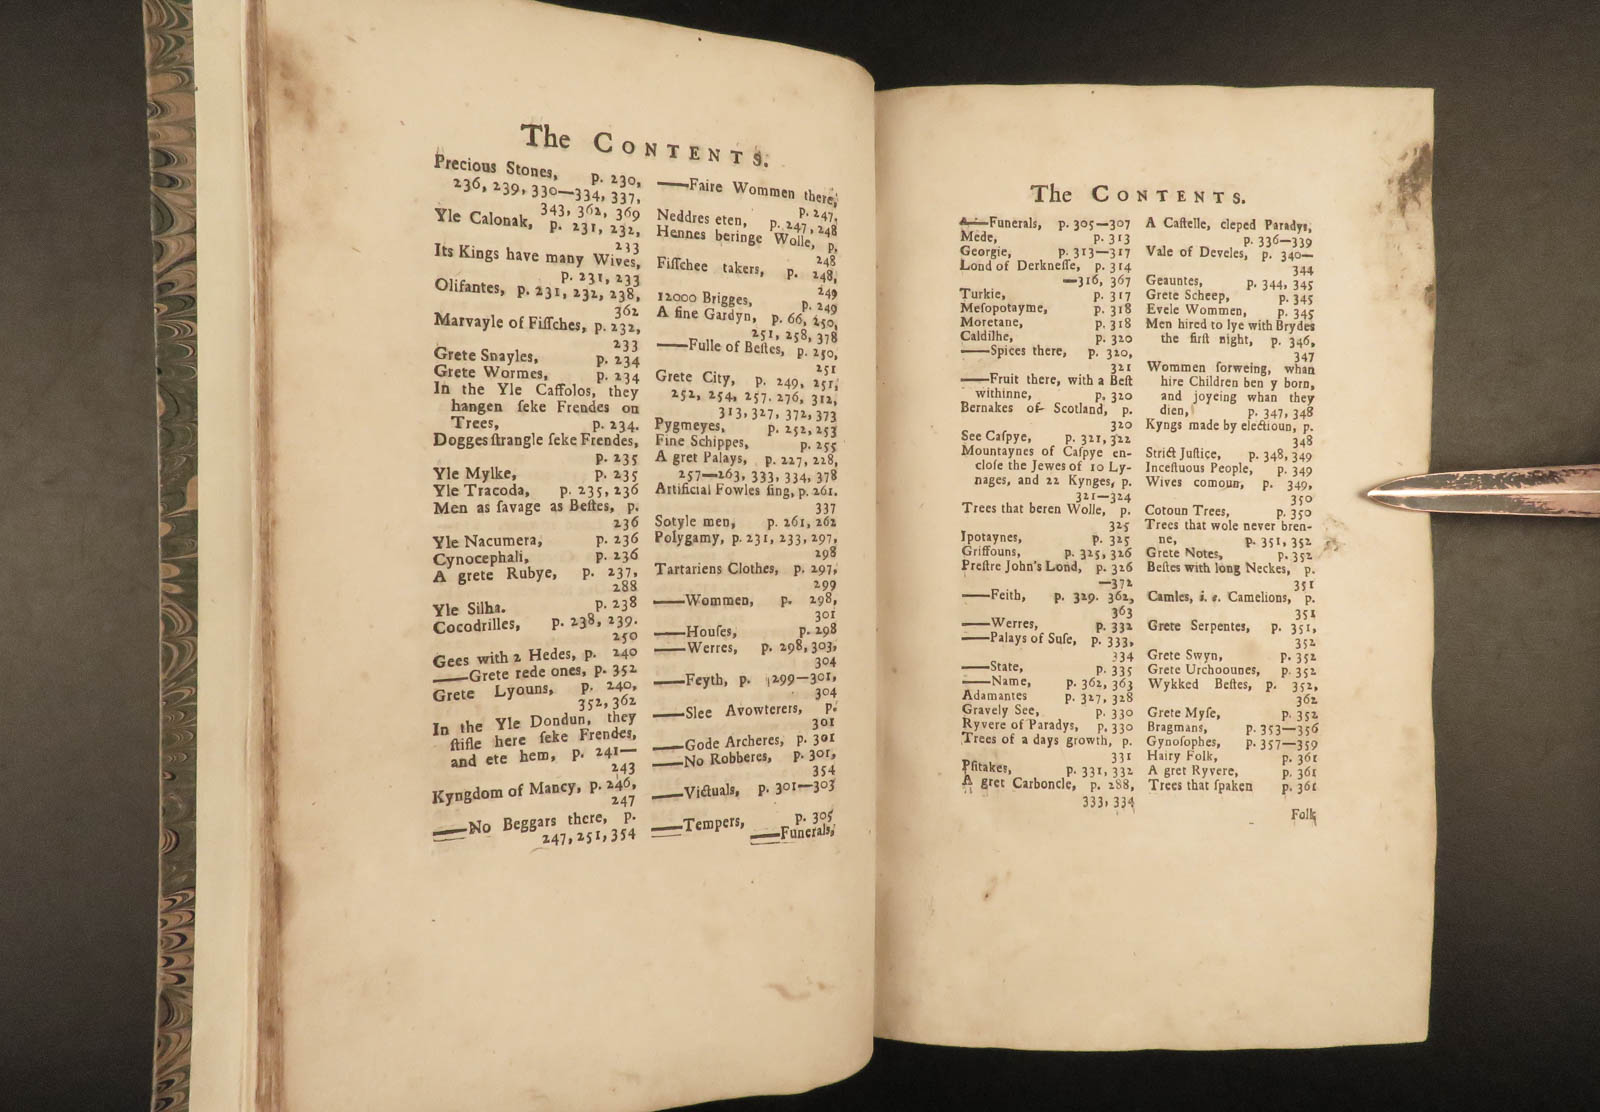 The CONTENTS.
Precious Stones, p. 230,
236, 239, 330—334, 337,
343, 362, 369
Yle Calonak, p. 231, 232,
233
Its Kings have many Wives,
p. 231, 233
Olifantes, p. 231, 232, 238,
362
Marvayle of Fiſſches, p. 232,
233
Grete Snayles, p. 234
Grete Wormes, p. 234
In the Yle Caffolos, they
hangen ſeke Frendes on
Trees, p. 234.
Dogges ſtrangle ſeke Frendes,
p. 235
Yle Mylke, p. 235
Yle Tracoda, p. 235, 236
Men as ſavage as Beſtes, p.
236
Yle Nacumera, p. 236
Cynocephali, p. 236
A grete Rubye, p. 237,
288
Yle Silha. p. 238
Cocodrilles, p. 238, 239.
250
Gees with 2 Hedes, p. 240
——Grete rede ones, p. 352
Grete Lyouns, p. 240,
352, 362
In the Yle Dondun, they
ſtifle here ſeke Frendes,
and ete hem, p. 241—
243
Kyngdom of Mancy, p. 246,
247
——No Beggars there, p.
247, 251, 354
——Faire Wommen there,
p. 247,
Neddres eten, p. 247, 248
Hennes beringe Wolle, p.
248
Fiſſchee takers, p. 248,
249
12000 Brigges, p. 249
A fine Gardyn, p. 66, 250,
251, 258, 378
——Fulle of Beſtes, p. 250,
251
Grete City, p. 249, 251,
252, 254, 257. 276, 312,
313, 327, 372, 373
Pygmeyes, p. 252, 253
Fine Schippes, p. 255
A gret Palays, p. 227, 228,
257—263, 333, 334, 378
Artificial Fowles ſing, p. 261.
337
Sotyle men, p. 261, 262
Polygamy, p. 231, 233, 297,
298
Tartariens Clothes, p. 297,
299
——Wommen, p. 298,
301
——Houſes, p. 298
——Werres, p. 298, 303,
304
——Feyth, p. 299—301,
304
——Slee Avowterers, p.
301
——Gode Archeres, p. 301
——No Robberes, p. 301,
354
——Victuals, p. 301—303
——Tempers, p. 305
——Funerals,
The CONTENTS.
——Funerals, p. 305—307
Mede, p. 313
Georgie, p. 313—317
Lond of Derkneſſe, p. 314
—316, 367
Turkie, p. 317
Meſopotayme, p. 318
Moretane, p. 318
Caldilhe, p. 320
——Spices there, p. 320,
321
——Fruit there, with a Beſt
withinne, p. 320
Bernakes of Scotland, p.
320
See Caſpye, p. 321, 322
Mountaynes of Caſpye en-
cloſe the Jewes of 10 Ly-
nages, and 22 Kynges, p.
321—324
Trees that beren Wolle, p.
325
Ipotaynes, p. 325
Griffouns, p. 325, 326
Preſtre John's Lond, p. 326
—372
——Feith, p. 329. 362,
363
——Werres, p. 332
——Palays of Suſe, p. 333,
334
——State, p. 335
——Name, p. 362, 363
Adamantes p. 327, 328
Gravely See, p. 330
Ryvere of Paradys, p. 330
Trees of a days growth, p.
331
Pſitakes, p. 331, 332
A gret Carboncle, p. 288,
333, 334
A Caſtelle, cleped Paradys,
p. 336—339
Vale of Develes, p. 340—
344
Geauntes, p. 344, 345
Grete Scheep, p. 345
Evele Wommen, p. 345
Men hired to lye with Brydes
the firſt night, p. 346,
347
Wommen ſorweing, whan
hire Children ben y born,
and joyeing whan they
dien, p. 347, 348
Kyngs made by electioun, p.
348
Strict Juſtice, p. 348, 349
Inceſtuous People, p. 349
Wives comoun, p. 349,
350
Cotoun Trees, p. 350
Trees that wole never bren-
ne, p. 351, 352
Grete Notes, p. 352
Beſtes with long Neckes, p.
351
Camles, i. e. Camelions, p.
351
Grete Serpentes, p. 351,
352
Grete Swyn, p. 352
Grete Urchoounes, p. 352
Wykked Beſtes, p. 352,
362
Grete Myſe, p. 352
Bragmans, p. 353—356
Gynoſophes, p. 357—359
Hairy Folk, p. 361
A gret Ryvere, p. 361
Trees that ſpaken p. 361
Folk